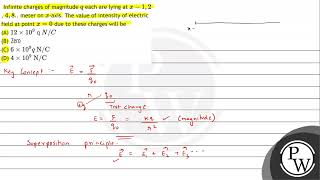 Infinite charges of magnitude q each are lying at x = 1, 2
, 4, 8, meter on x-axis. The value of intensity of electric
field at point x = 0 due to these charges will be
(A) 12 × 10⁹ q N/C
(B) Zero
(C) 6 × 10⁹q N/C
(D) 4 × 10⁹ N/C
x-
Key Concept :- E⃗ = F⃗/q₀
r q₀
Test charge
E = F/q₀ = kq/r² ✓ (magnitude)
Superposition principle:-
E⃗ = E⃗₁ + E⃗₂ + E⃗₃ ...
PW